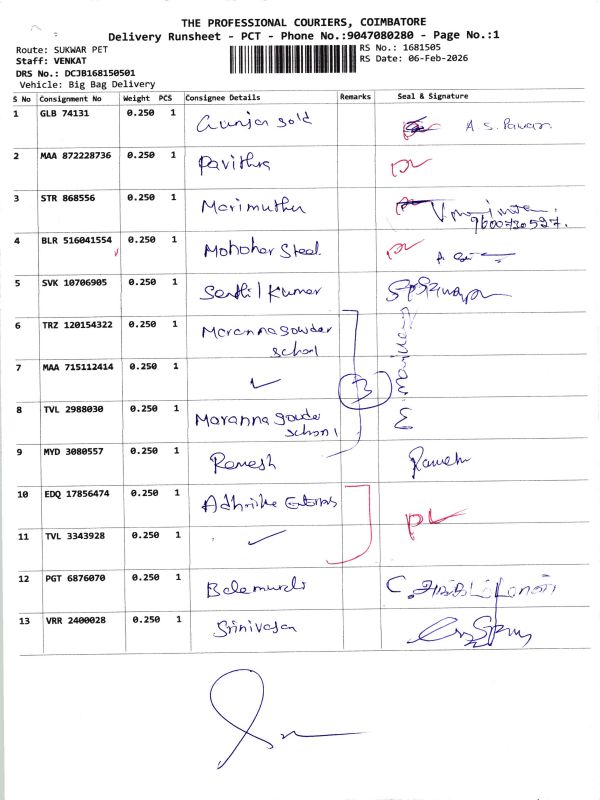 THE PROFESSIONAL COURIERS, COIMBATORE
Delivery Runsheet - PCT - Phone No.:9047080280 - Page No.:1
Route: SUKWAR PET
RS No.: 1681505
Staff: VENKAT
RS Date: 06-Feb-2026
DRS No.: DCJB168150501
Vehicle: Big Bag Delivery
S No Consignment No Weight PCS Consignee Details Remarks Seal & Signature
1 GLB 74131 0.250 1 Gunjan Gold A.S. Pavan
2 MAA 872228736 0.250 1 Pavithra
3 STR 868556 0.250 1 Marimuthu
9600730527.
4 BLR 516041554 0.250 1 Mohohar Steel
5 SVK 10706905 0.250 1 Senthil Kumar
6 TRZ 120154322 0.250 1 Maranna Gowder
School
7 MAA 715112414 0.250 1 ✓
3
8 TVL 2988030 0.250 1 Maranna Gouder
School
9 MYD 3080557 0.250 1 Ramesh Ramesh
10 EDQ 17856474 0.250 1
11 TVL 3343928 0.250 1 ✓
12 PGT 6876070 0.250 1 Balamurali
13 VRR 2400028 0.250 1 Srinivasan